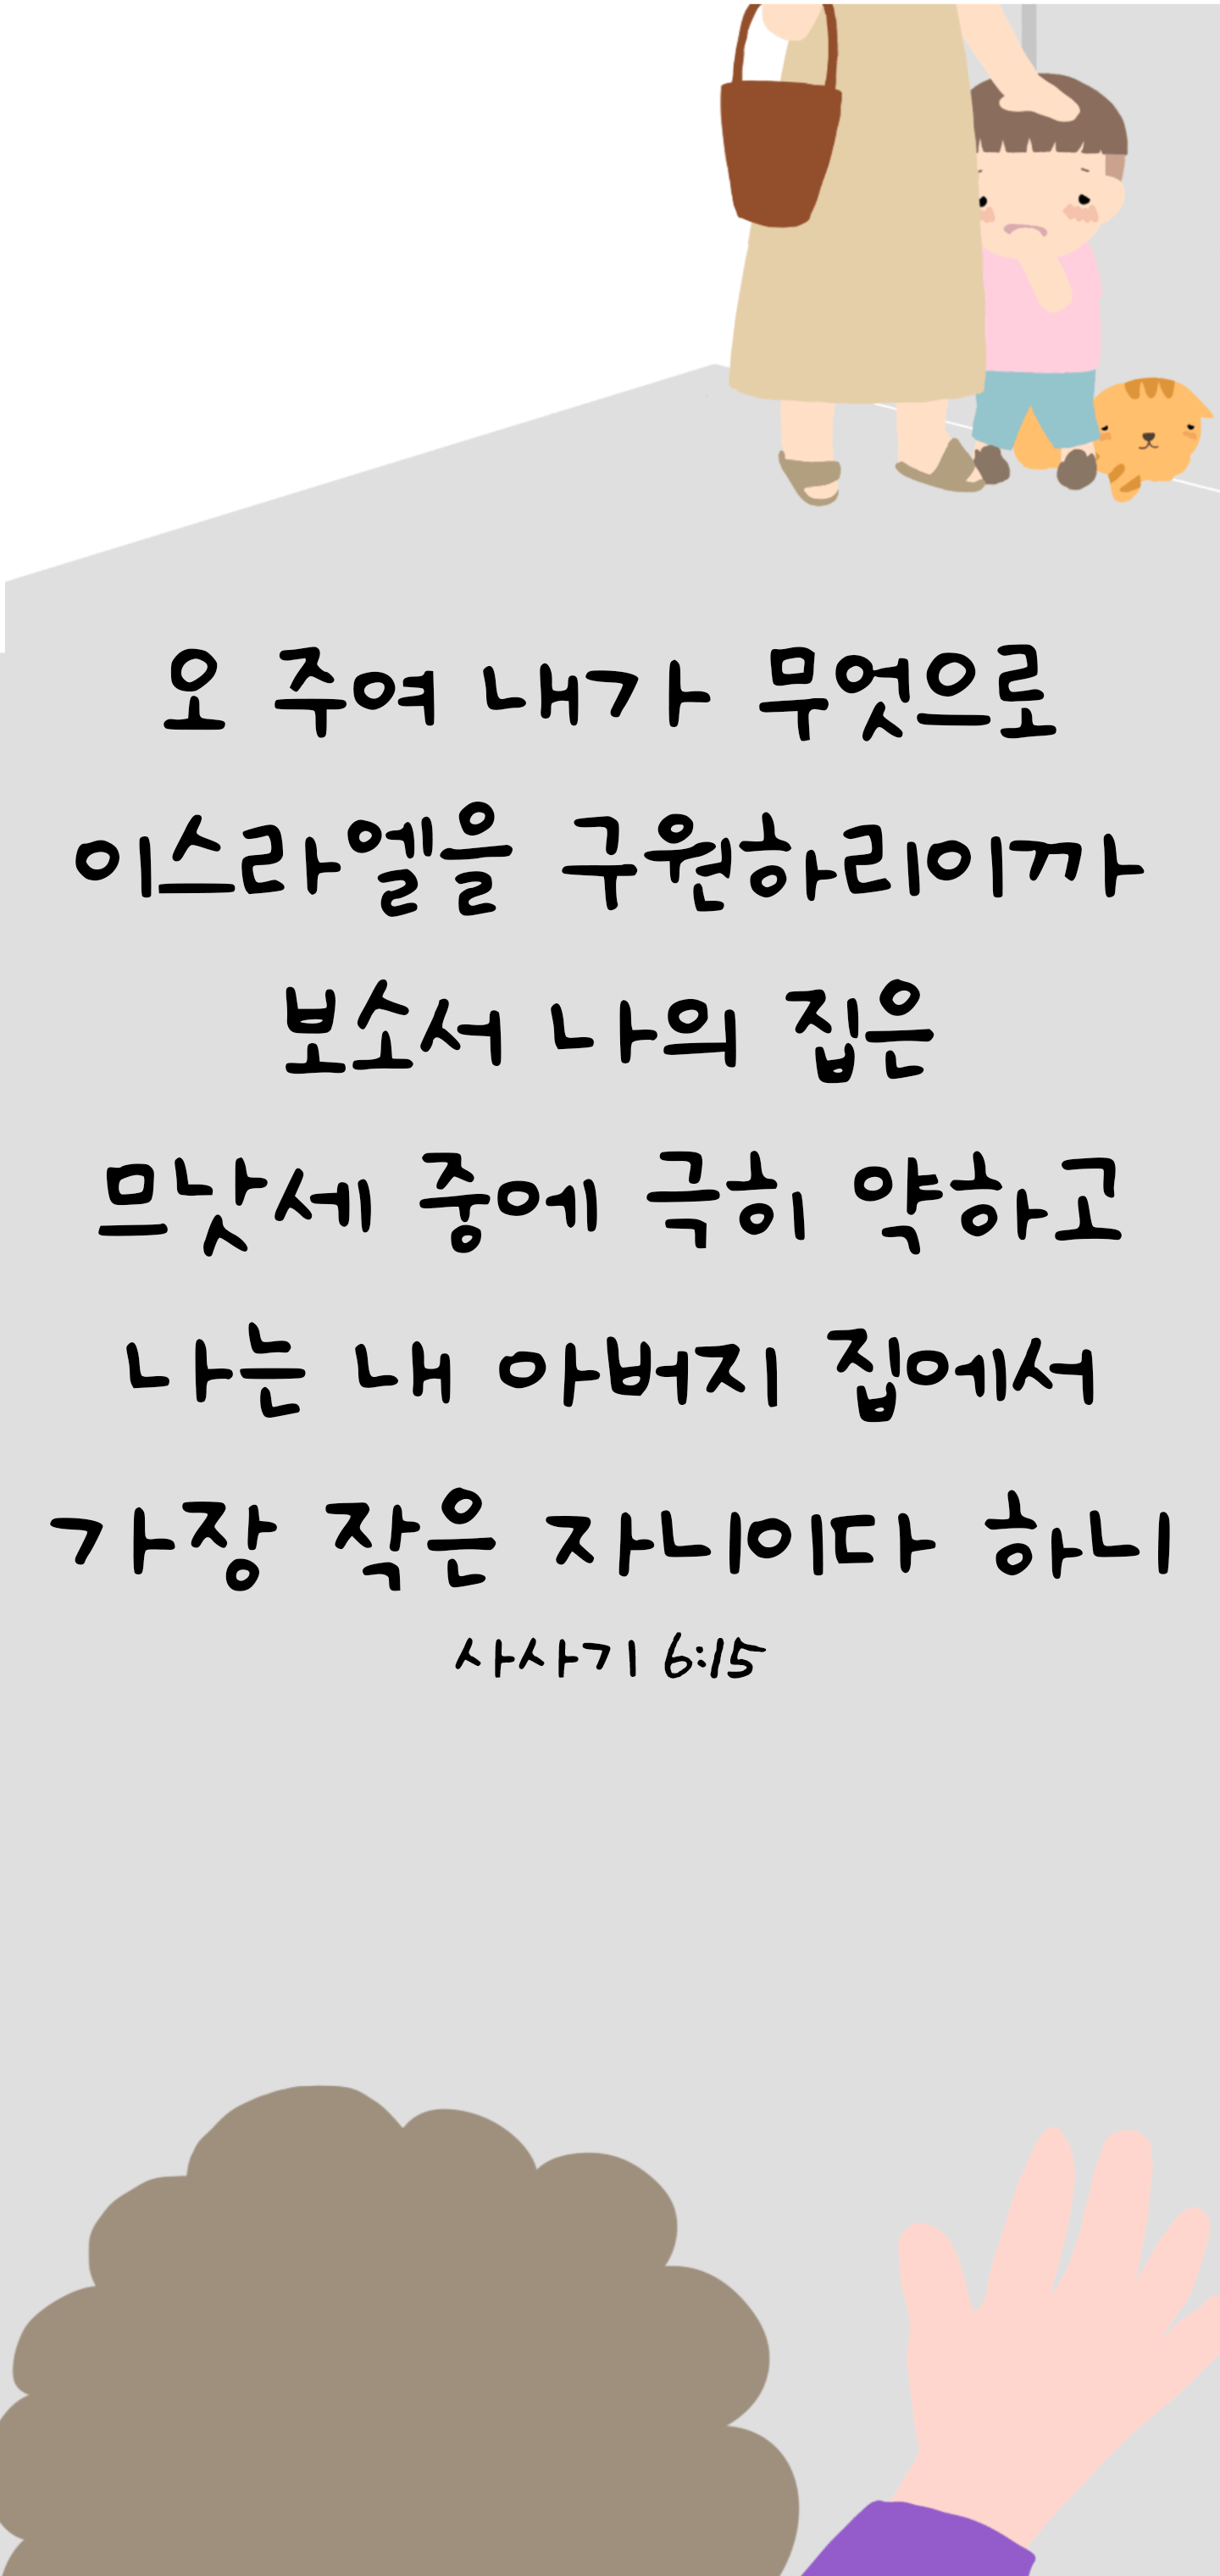 오 주여 내가 무엇으로
이스라엘을 구원하리이까
보소서 나의 집은
므낫세 중에 극히 약하고
나는 내 아버지 집에서
가장 작은 자니이다 하니
사사기 6:15